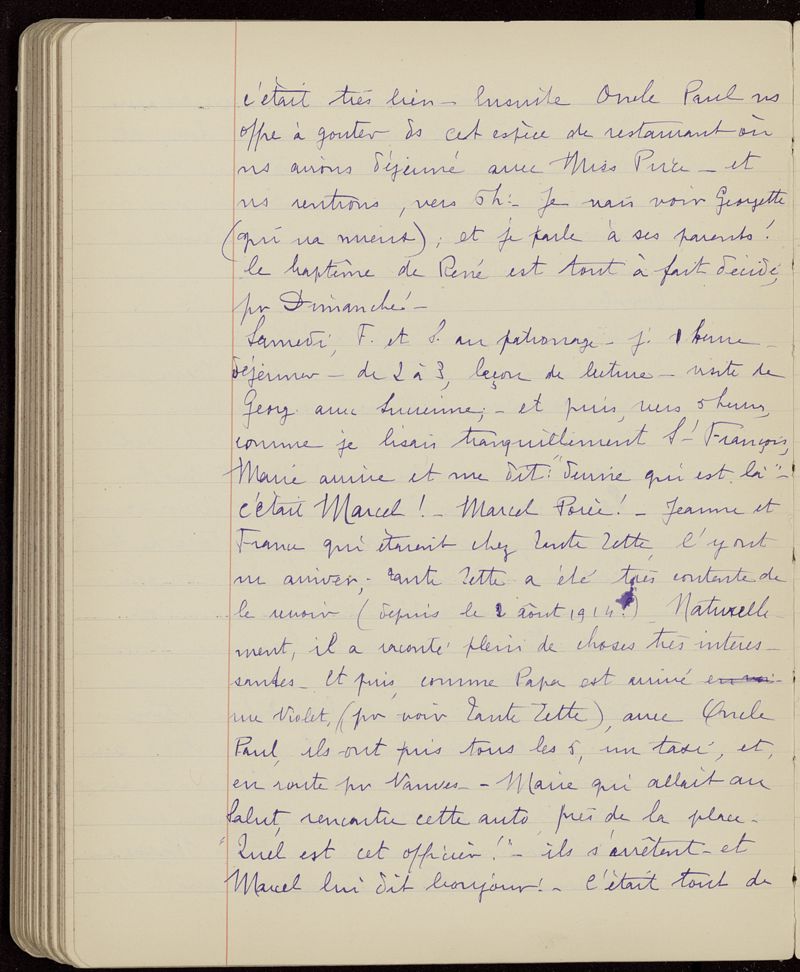 c'était très bien – Ensuite Oncle Paul ns
offre à gouter ds cet espèce de restaurant où
ns avions déjeuné avec Miss Price – et
ns rentrons, vers 5h – Je vais voir Georgette
(qui va mieux), et je parle à ses parents!
le baptême de René est tout à fait décidé,
pr Dimanche! –
Samedi, F. et S. au patronage – j. 1 heure –
déjeuner – de 2 à 3, leçon de lecture – visite de
Georg. avec Lucienne, – et puis, vers 5 heures,
comme je lisais tranquillement St François,
Marie arrive et me dit: "devine qui est là" –
c'était Marcel! – Marcel Porée! – Jeanne et
France qui étaient chez Tante Zette, l'y ont
vu arriver; – tante Zette a été très contente de
le revoir (depuis le 2 août 1914!) Naturelle-
ment, il a raconté plein de choses très intéres-
santes – Et puis, comme Papa est arrivé
rue Violet, (pr voir Tante Zette), avec Oncle
Paul, ils ont pris tous les 5, un taxi, et,
en route pr Vanves – – Marie qui allait au
Salut, rencontre cette auto, près de la place –
"Quel est cet officier!" – ils s'arrêtent – et
Marcel lui dit bonjour! – C'était tout de